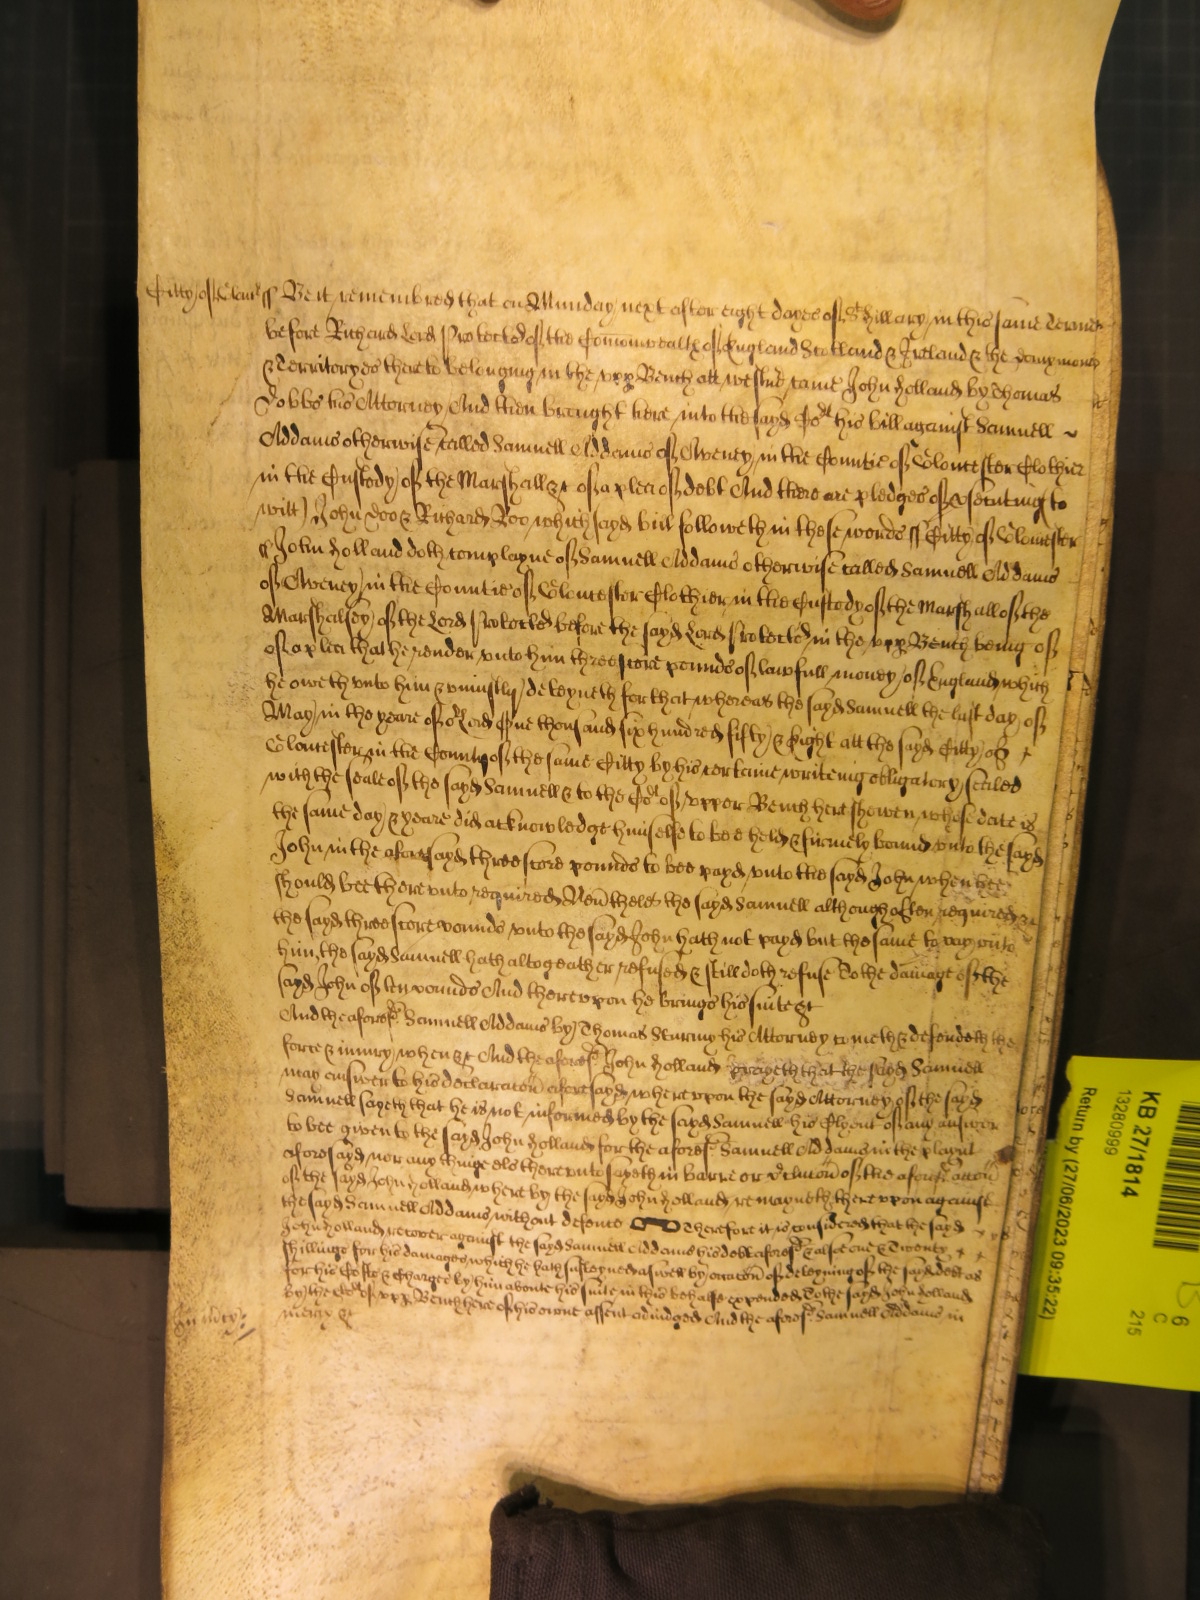 Citty of Glouc ss Be it remembred that on Munday next after eight dayes of St Hillary in this same Terme
before Richard Lord Protector of the Comonwealth of England Scotland & Ireland & the Dominions
& Territoryes thereto belonging in the upp Bench att Westmr came John Holland by Thomas
Dobbs his Attorney And then brought here into the sayd Cort his bill against Samuell
Addams otherwise called Samuell Addams of in the Countie of Gloucester Clothier
in the Custody of the Marshall &c of a plea of debt And there are pledges of psecuting to
witt John Doo & Richard Roo which sayd bill followeth in these words ss Citty of Gloucester
ss John Holland doth complayne of Samuell Addams otherwise called Samuell Addams
of in the Countie of Gloucester Clothier in the Custody of the Marshall of the
Marshalsey of the Lord Protector before the sayd Lord Protector in the upp Bench being of
of a plea that he render unto him threescore pounds of lawfull money of England which
he oweth unto him & uniustly deteyneth for that whereas the sayd Samuell the last day of
May in the yeare of or Lord One thousand six hundred fifty & Eight att the sayd Citty of
Gloucester in the County of the same Citty by his certaine writeing obligatory sealed
with the seale of the sayd Samuell & to the Cort of upper Bench here shewen whose date is
the same day & yeare did acknowledge himselfe to bee held & firmely bound unto the sayd
John in the aforesayd threescore pounds to bee payd unto the sayd John when hee
should bee thereunto required Nevtheles the sayd Samuell although often required &c
the sayd threescore pounds unto the sayd John hath not payd but the same to pay unto
him the sayd Samuell hath altogeather refused & still doth refuse To the damage of the
sayd John of ten pounds And thereupon he brings his suite &c
And the aforesd Samuell Addams by Thomas Sturmy his Attorney cometh & defendeth the
force & iniury when &c And the aforesd John Holland prayeth that the sayd Samuell
may answer to his declaracon aforesayd whereupon the sayd Attorney of the sayd
Samuell sayeth that he is not informed by the sayd Samuell his Clyent of any answer
to bee given to the sayd John Holland for the aforesd Samuell Addams in the playnt
aforesayd nor any thinge els thereunto sayeth in barre or of the
of the sayd John Holland whereby the sayd John Holland remayneth thereupon against
the sayd Samuell Addams without defence Therefore it is considered that the sayd
John Holland recover against the sayd Samuell Addams his debt aforesd & alsoe one & Twenty
shillings for his damages which he hath susteyned aswell by occacon of deteyning of the sayd debt as
for his Costs & Charges by him aboute his suite in this behalfe expended To the sayd John Holland
by the Cort of upp Bench here of his owne assent adiudged And the aforesd Samuell Addams in
mercy &c
In mcy
KB 27/1814
13280999
Return by (27/06/2023 09:35:22)
6
C
215